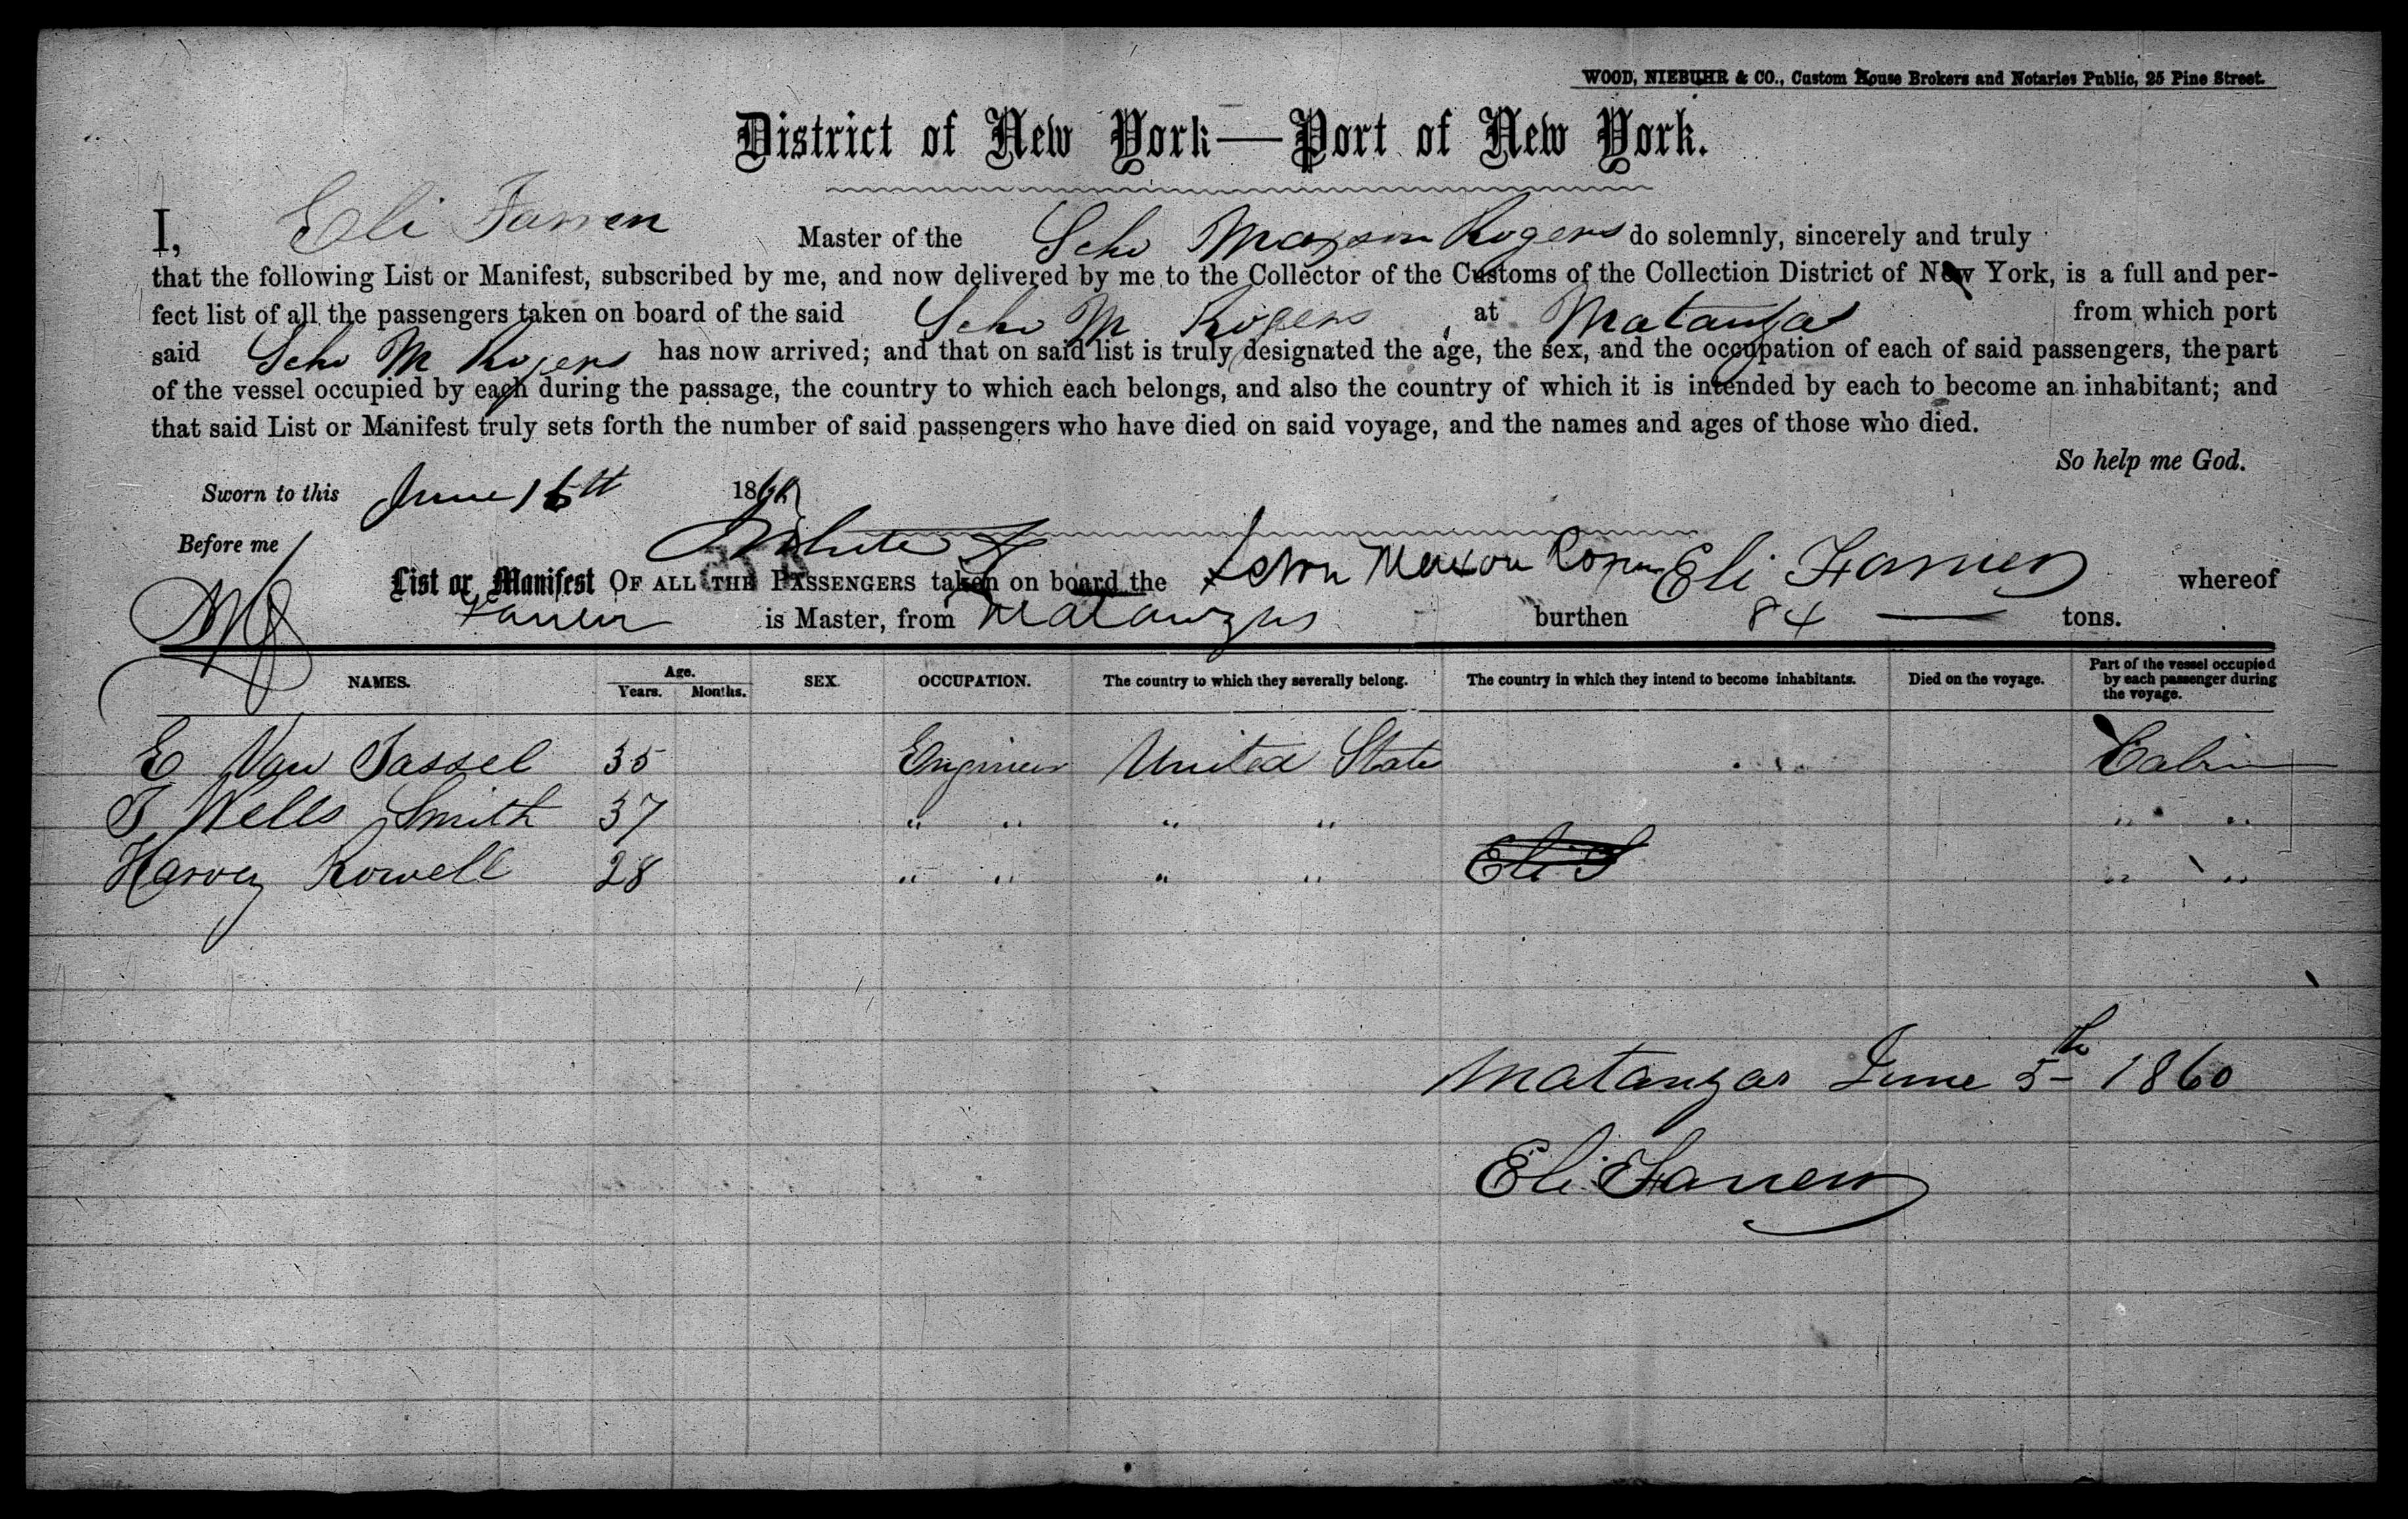 WOOD, NIEBUHR & CO., Custom House Brokers and Notaries Public, 25 Pine Street.
District of New York—Port of New York.
I, Eli Farren Master of the Schr Maxson Rogers do solemnly, sincerely and truly
that the following List or Manifest, subscribed by me, and now delivered by me to the Collector of the Customs of the Collection District of New York, is a full and per-
fect list of all the passengers taken on board of the said Schr M Rogers at Matanzas from which port
said Schr M Rogers has now arrived; and that on said list is truly designated the age, the sex, and the occupation of each of said passengers, the part
of the vessel occupied by each during the passage, the country to which each belongs, and also the country of which it is intended by each to become an inhabitant; and
that said List or Manifest truly sets forth the number of said passengers who have died on said voyage, and the names and ages of those who died.
So help me God.
Sworn to this June 16th 1860
Before me
List or Manifest OF ALL THE PASSENGERS taken on board the Schr Maxon Rogers Eli Farren whereof
Farren is Master, from Matanzas burthen 84 — tons.
NAMES. Age. Years. Months. SEX. OCCUPATION. The country to which they severally belong. The country in which they intend to become inhabitants. Died on the voyage. Part of the vessel occupied by each passenger during the voyage.
E Van Tassel 35 Engineer United State Cabin
T Wells Smith 37 " " " " " "
Harvey Rowell 28 " " " " Eli " "
Matanzas June 5th 1860
Eli Farren